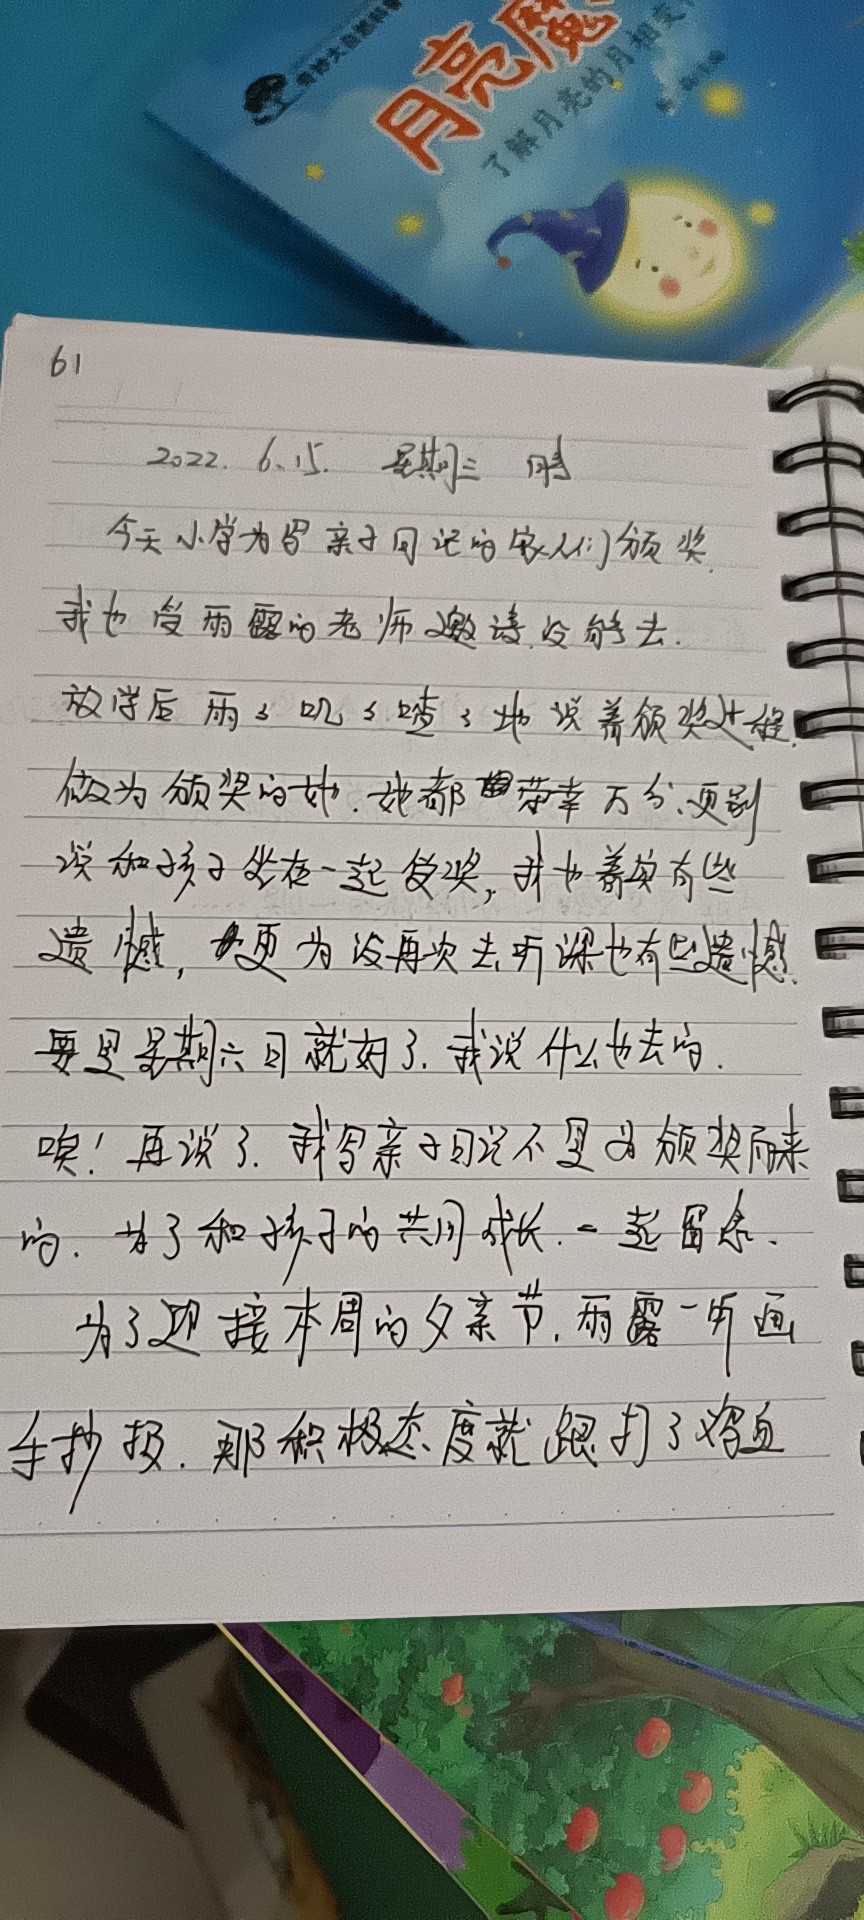 月亮魔
了解月亮的月相变
61
2022. 6.15. 星期三 晴
今天小学为写亲子日记的家人们颁奖.
我也受雨露的老师邀请.没能去.
放学后雨々叽々喳々地说着颁奖过程.
做为颁奖的她.她都荣幸万分.更别
说和孩子坐在一起受奖,我也着实有些
遗憾,更为没再次去听课也有些遗憾.
要是星期六日就好了.我说什么也去的.
唉!再说了.我写亲子日记不是为颁奖而来
的.为了和孩子的共同成长.一起留念.
为了迎接本周的父亲节.雨露一听画
手抄报.那积极态度就跟打了鸡血